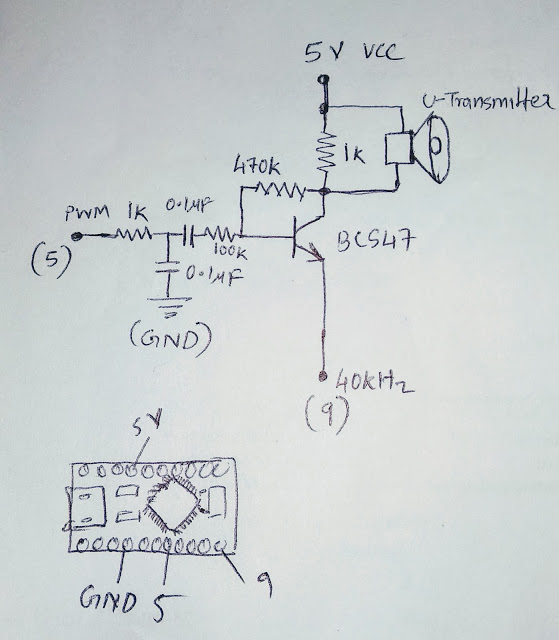 5V VCC
U-Transmitter
1K
470K
PWM 1K 0.1µF
100K
BC547
(5)
0.1µF
(GND)
40KHz
(9)
5V
GND 5 9